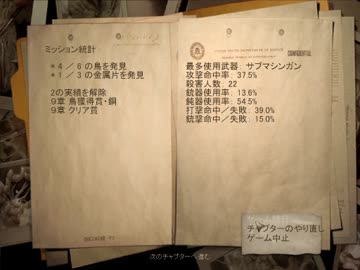 ミッション統計
* 4 / 6 の鳥を発見
* 1 / 3 の金属片を発見
2の実績を解除
9章 鳥獲得賞・銅
9章 クリア賞
CONFIDENTIAL
最多使用武器: サブマシンガン
攻撃命中率: 37.5%
殺害人数: 22
銃器使用率: 13.6%
鈍器使用率: 54.5%
打撃命中/失敗: 39.0%
銃撃命中/失敗: 15.0%
チャプターのやり直し
ゲーム中止
次のチャプターへ進む